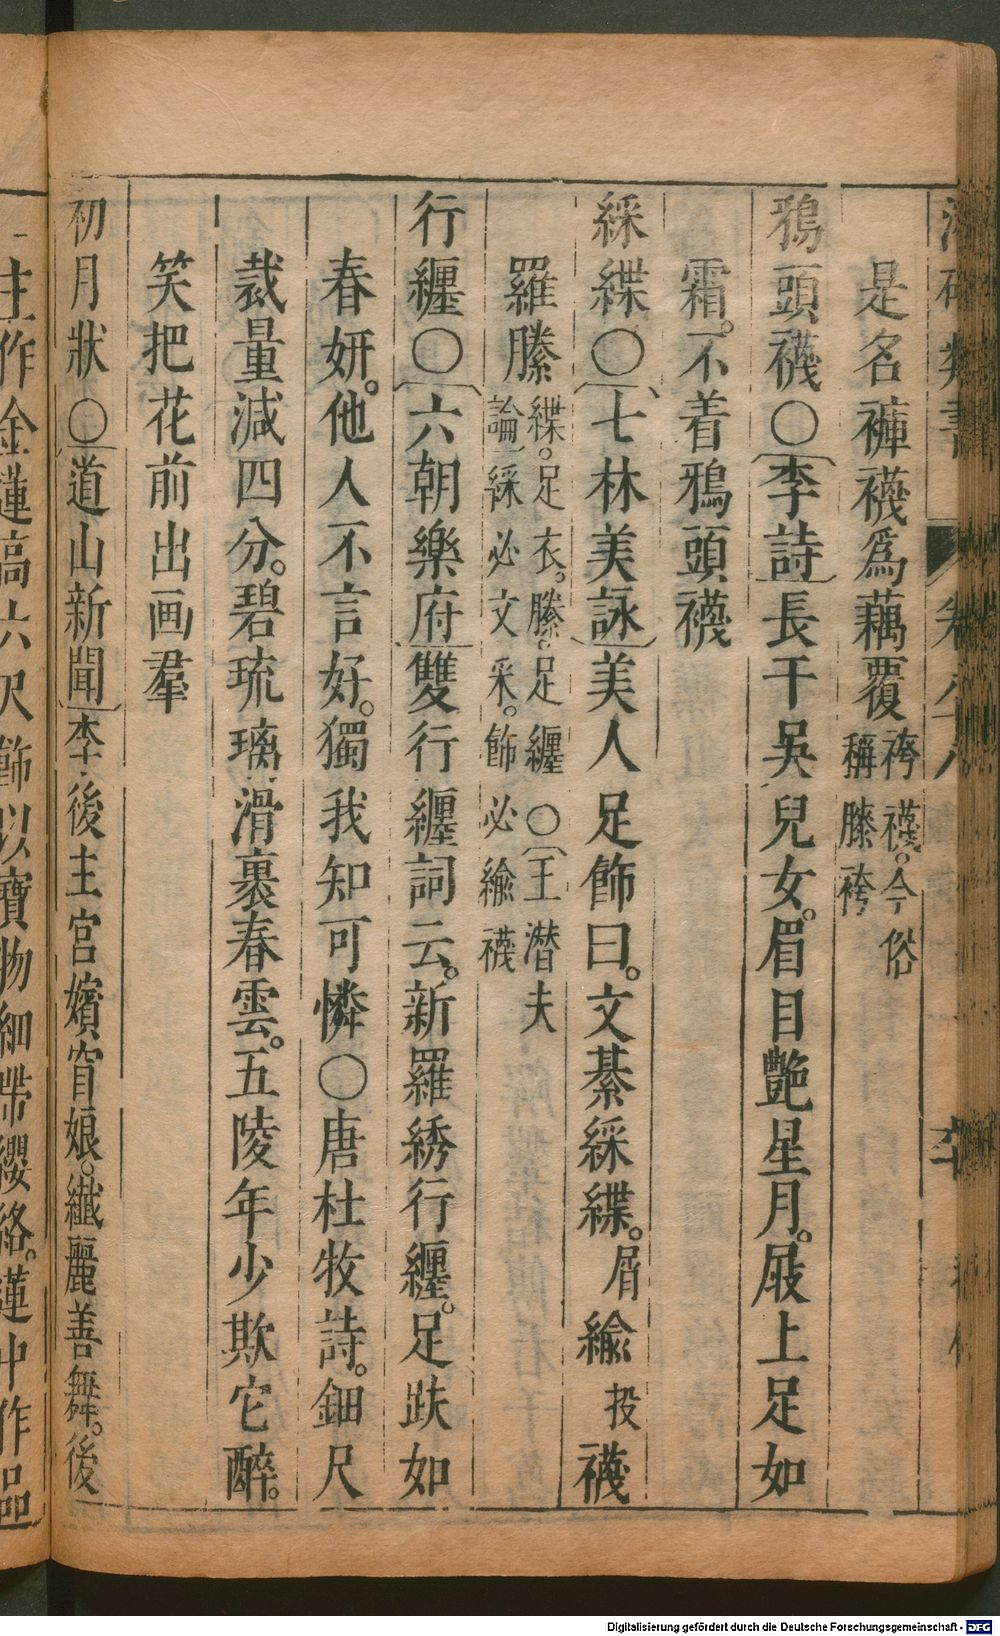 是名褲襪爲藕覆袴襪。今俗稱膝袴
鴉頭襪○李詩長干吳兒女。眉目艷星月。屐上足如
霜。不着鴉頭襪
綵緤○七林美詠美人足飾曰。文綦綵緤。屑緰投襪
羅縢緤。足衣。縢。足纏○王潛夫論綵必文采。飾必緰襪
行纏○六朝樂府雙行纏詞云。新羅綉行纏。足趺如
春妍。他人不言好。獨我知可憐○唐杜牧詩。鈿尺
裁量減四分。碧琉璃滑裹春雲。五陵年少欺它醉。
笑把花前出画羣
初月狀○道山新聞李後主宮嬪窅娘。纖麗善舞。後
主作金蓮高六尺飾以寶物細帶纓絡。蓮中作品
Digitalisierung gefördert durch die Deutsche Forschungsgemeinschaft - DFG